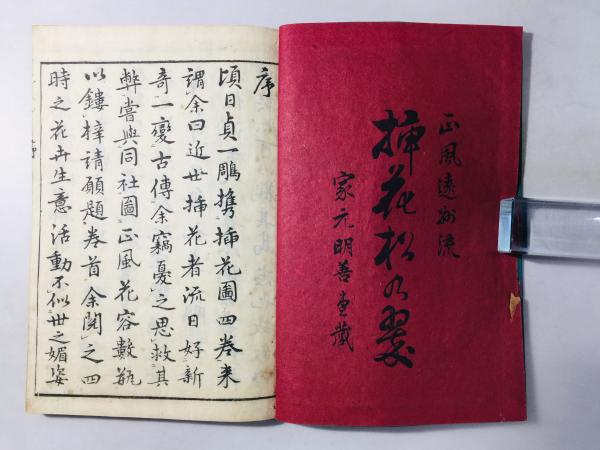 正風遠州流
挿花松乃翠
家元明善堂蔵
序
頃日貞一雕携挿花圖四巻来
謂余曰近世挿花者流日好新
奇一變古傳余竊憂之思救其
弊嘗與同社圖正風花容數瓶
以鏤梓請願題巻首余閲之四
時之花卉生意活動不似世之媚姿
序